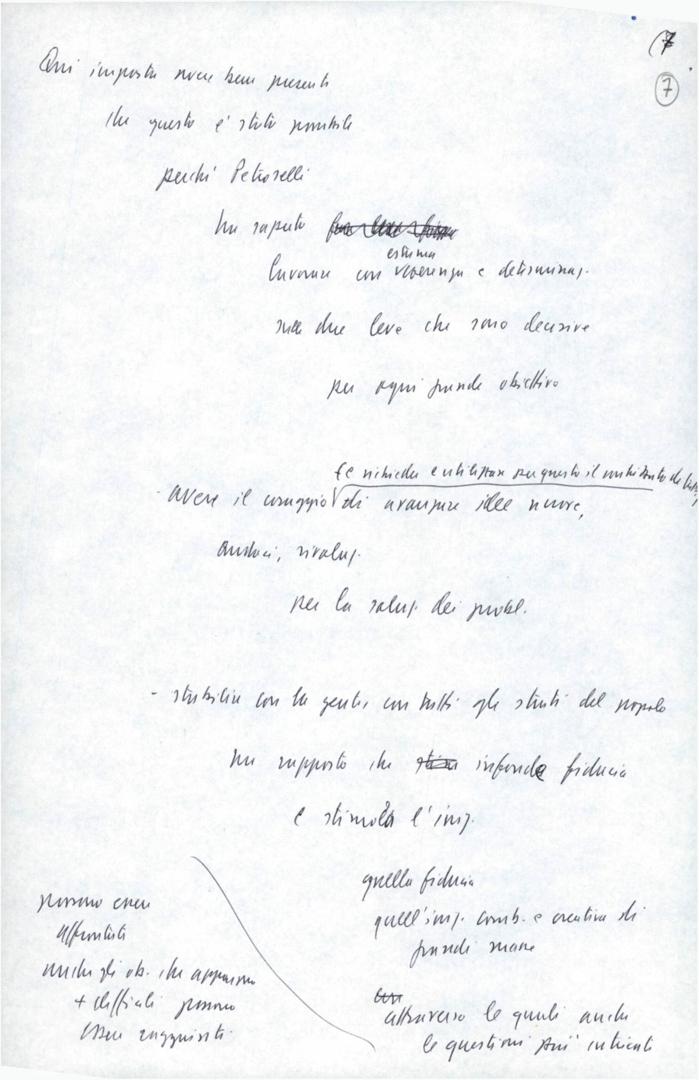 7
7
Qui importa avere ben presenti
che questo è stato possibile
perché Petroselli
ha saputo
estrema
lavorare con coerenza e determinaz.
sulle due leve che sono decisive
per ogni grande obiettivo
(e richieder e utilizzare per questo il contributo de
- avere il coraggio di avanzare idee nuove,
audaci, rivoluz.
per la soluz. dei probl.
- stabilire con la gente, con tutti gli strati del popolo
un rapporto che infonde fiducia
e stimola l'iniz.
quella fiducia
quell'iniz. comb. e creativa di
grandi masse
attraverso le quali anche
le questioni più intricati
possono essere
affrontati
anche gli ob. che appaiono
+ difficili possono
essere raggiunti.